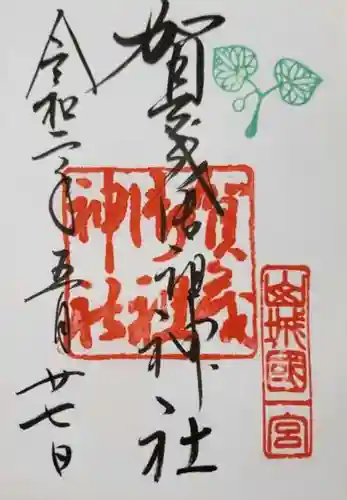 賀茂御祖神社
山城國一宮
賀茂
御祖
神社
令和二年五月廿七日